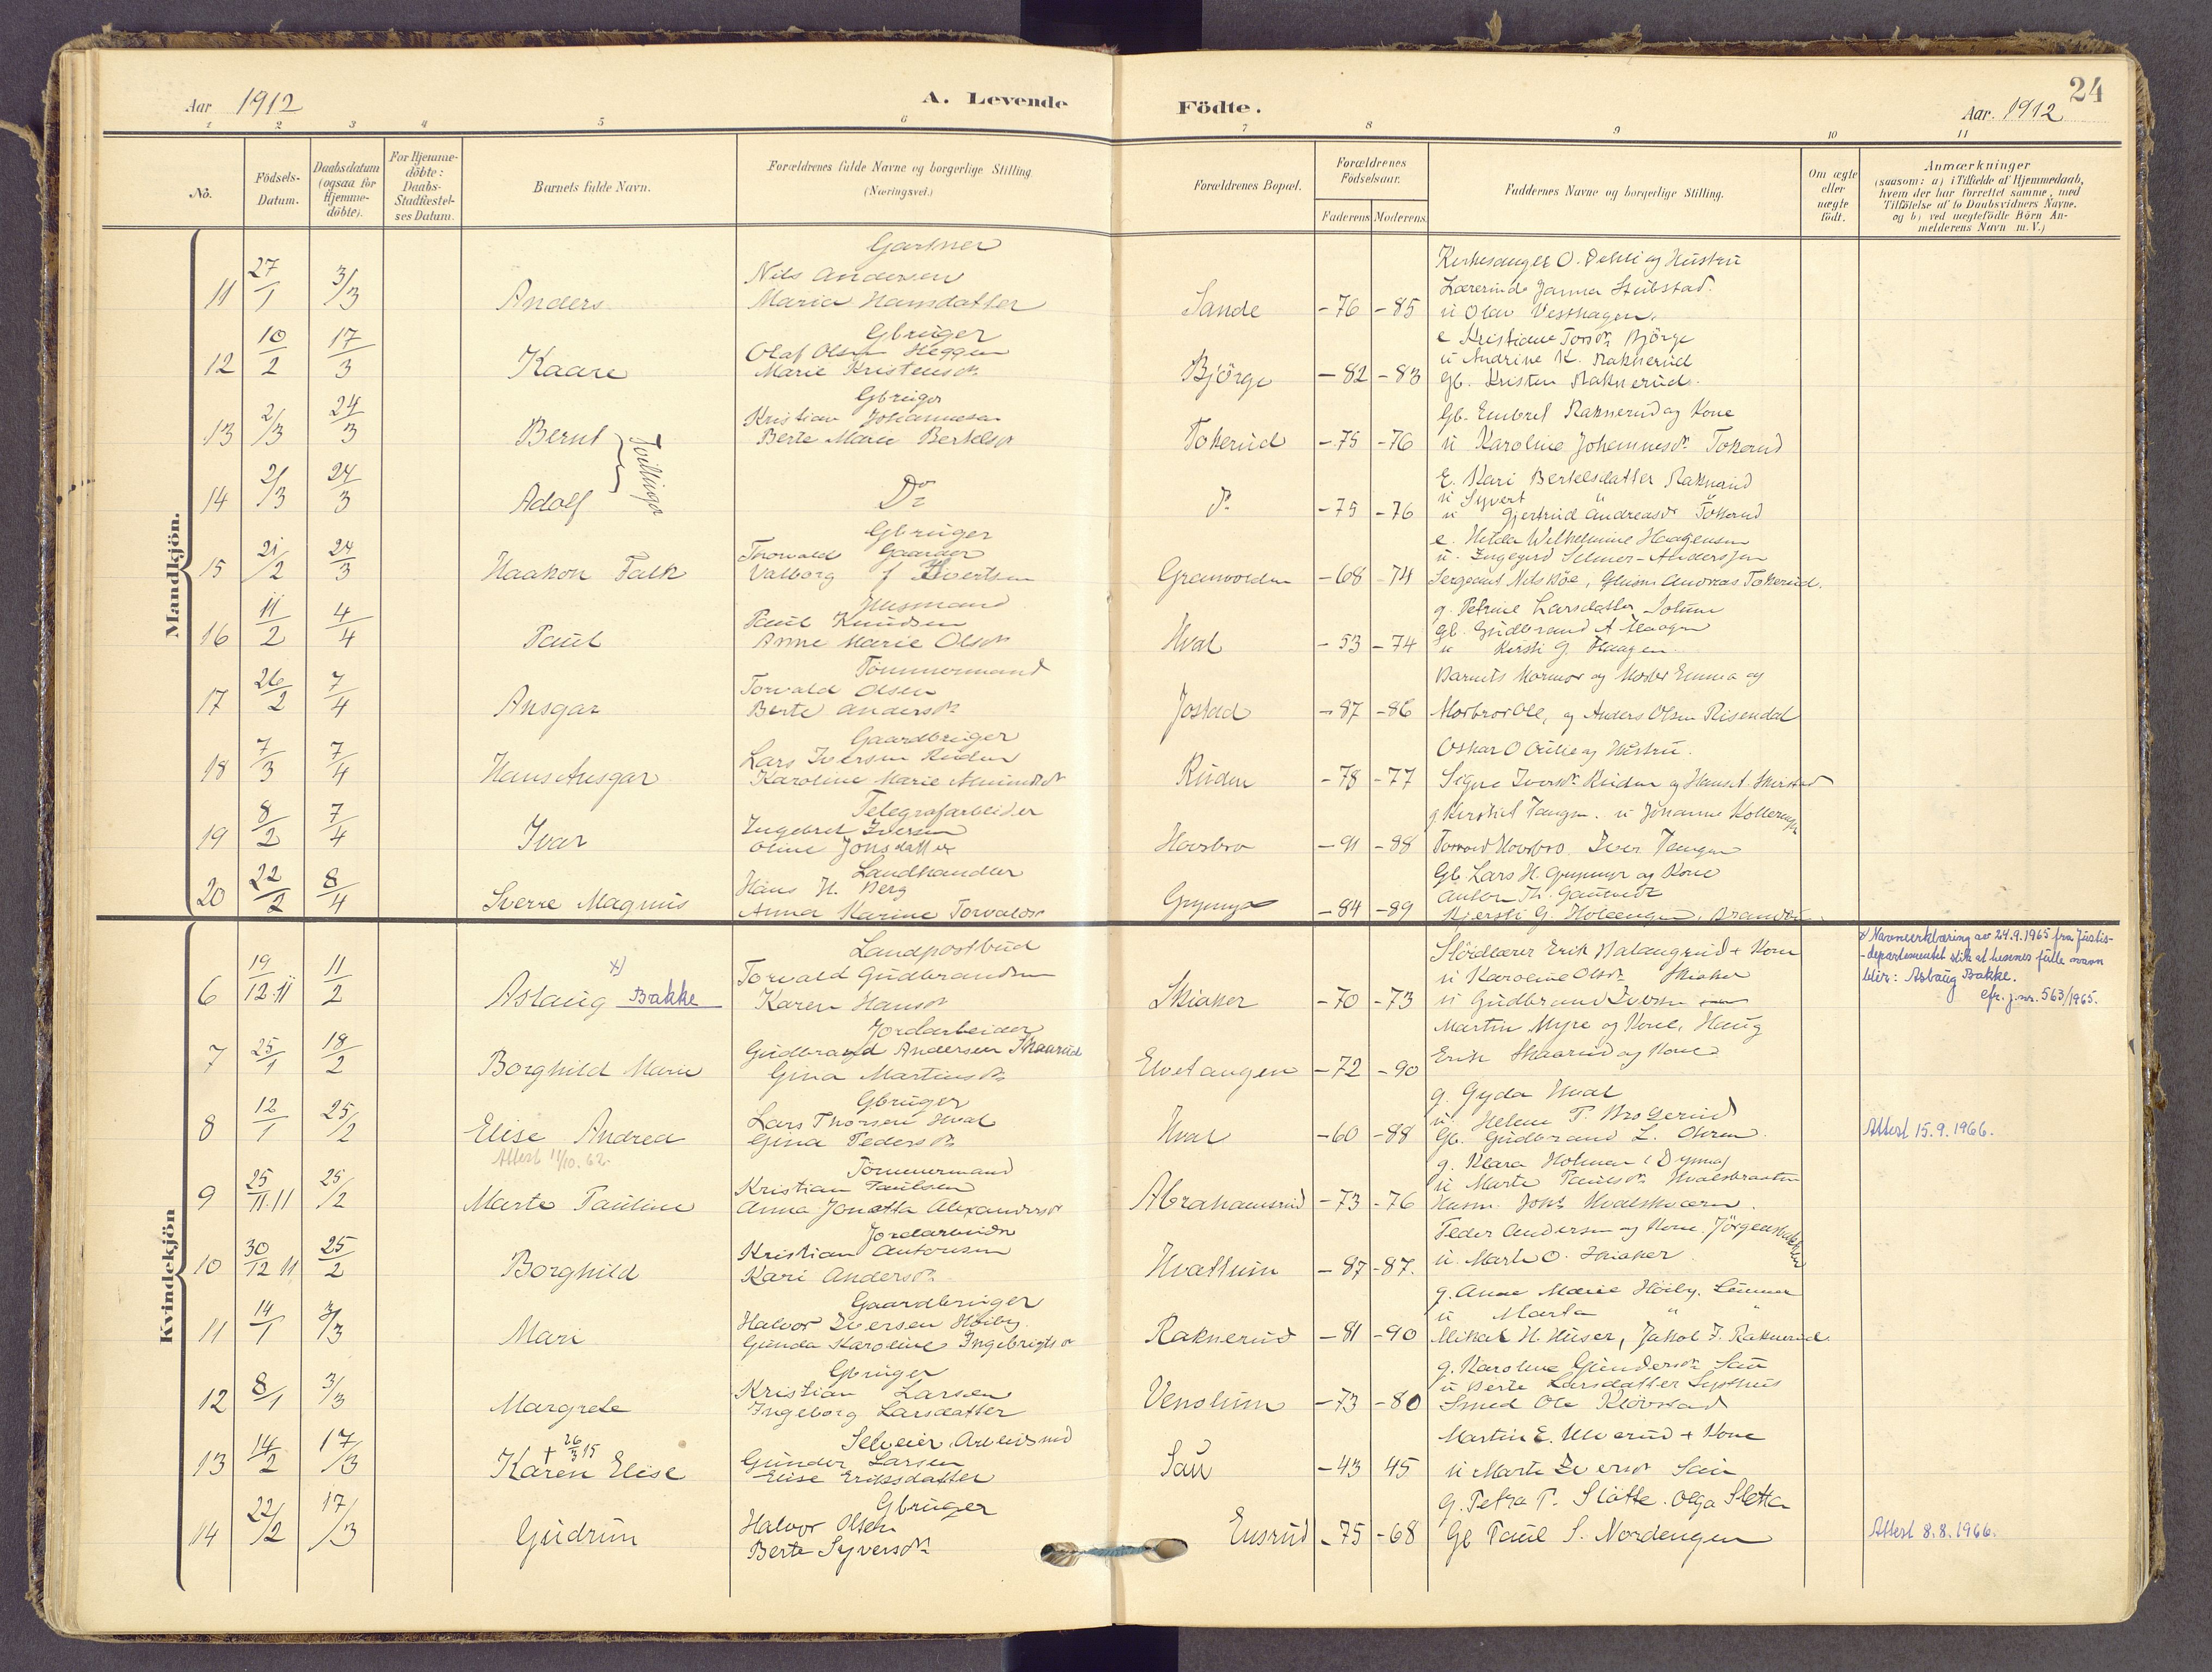 24
Aar 1912
A. Levende
Födte.
Aar. 1912
1 2 3 4 5 6 7 8 9 10 11
No.
Födsels-
Datum.
Daabsdatum
(ogsaa for
Hjemme-
döbte).
For Hjemme-
döbte:
Daabs-
Stadfæstel-
ses Datum.
Barnets fulde Navn.
Forældrenes fulde Navne og borgerlige Stilling
(Næringsvei.)
Forældrenes Bopæl.
Forældrenes
Födselsaar.
Faderens Moderens
Faddernes Navne og borgerlige Stilling.
Om ægte
eller
uægte
födt.
Anmærkninger
(saasom: a) i Tilfælde af Hjemmedaab,
hvem der har forrettet samme, med
Tilföielse af to Daabsvidners Navne.
og b) ved uægtefödte Börn An-
melderens Navn m. V.)
Mandkjön.
Gartner
Nils Andersen
11 27/1 3/3 Anders Maria Hansdatter Sande -76 -85
Kirkesanger O. Dehli og Hustru
Lærerinde Janna Stubstad.
u Olav Vesthagen.
Gbruger
Olaf Olsen Heggen
12 10/2 17/3 Kaare Marie Kristensdr Björge -82 -83
e Kristiane Torsdr Björge
u Andrine K. Raknerud
Gb. Kristen Raknerud.
Gbruger
Kristian Johannesen
13 2/3 24/3 Bernt Berte Marie Bertelsdr Tokerud -75 -76
Tvillinger
Gb. Embret Raknerud og Kone
u Karoline Johannesdr Tokerud
14 2/3 24/3 Adolf Do do -75 -76
E. Kari Bertelsdatter Raknerud
u Syvert " "
u Gjertrud Andreasdr Tokerud
Gbruger
Thorvald Gaarder
15 21/2 24/3 Haakon Falk Valborg f Evertsen Granvolden -68 -74
e. Hilda Wilhelmine Haagensen
u. Ingegerd Selmer-Anderssen
Sergeant Nils Böe, Andreas Tokerud.
Husmand
Paul Knudsen
16 11/2 4/4 Paul Anne Marie Olsdr Hval -53 -74
g. Petrine Larsdatter
gb. Gudbrand A Haagen
u Kirsti G. Haagen
Tömmermand
Torvald Olsen
17 26/2 7/4 Ansgar Berte Andersdr Jostad -87 -86
Barnets Mormor og Moster Emma og
Morbror Ole, og Anders Olsen Risendal
Gaardbruger
Lars Iversen Ruden
18 7/3 7/4 Hans Ansgar Karoline Marie Amundsdr Ruden -78 -77
Oskar O Gulie og Hustru.
Signe Iversdr Ruden og Hans A.
Telegrafarbeider
Ingebret Iversen
19 8/2 7/4 Ivar Oline Jonsdatter Hovsbro -91 -88
g Kirsti Tangen. u Johanne Kollerengen
Torvald Hovsbro Iver Tangen
Landhandler
Hans H. Berg
20 22/2 8/4 Sverre Magnus Anna Karine Torvaldsdr Grymyr -84 -89
Gb Lars H. Grymyr og Kone
Anton Th.
Kjersti G.
Kvindekjön
Landpostbud
Torvald Gudbrandsen
6 19/12.11 11/2 Aslaug x) Bakke Karen Hansdr Skiaker -70 -73
Slöidlærer Erik Halangrud + Kone
u Karoline Olsdr Skiaker
u Gudbrand Iversen
x) Navneerklæring av 24.9.1965 fra Justis-
-departementet slik at hennes fulle navn
blir: Aslaug Bakke.
cfr. j.nr. 563/1965.
Jordarbeider
Gudbrand Andersen Skaarud
7 25/1 18/2 Borghild Marie Gina Martinsdr Elvetangen -72 -90
Martin Myre og Kone, Haug
Erik Skaarud og Kone
Gbruger
Lars Thorsen Hval
8 12/1 25/2 Elise Andrea Gina Pedersdr Hval -60 -88
Attest 11/10.62.
g. Gyda Hval
u. Helene P. Broderud
Gb. Gudbrand L. Ohren.
Attest 15.9.1966.
Tömmermand
Kristian Paulsen
9 25/11.11 25/2 Marte Pauline Anna Jonetta Alexandersdr Abrahamsrud -73 -76
g. Klara Holmen (Dynna)
u Marte Paulsdr Hvalsbraaten
Husm. Johs Hvalskværn.
Jordarbeider
Kristian Antonsen
10 30/12 11 25/2 Borghild Kari Andersdr Hvattum -87 -87.
Peder Andersen og Kone. Jörgensbakken
u. Marte O. Skiaker
Gaardbruger
Halvor Iversen Höiby.
11 14/1 3/3 Mari Gunda Karoline Ingebrigtsdr Raknerud -81 -90
g. Anne Marie Höiby. Lunner
u Marta " "
Mikal H. Huser, Jakob I. Raknerud.
Gbruger
Kristian Larsen
12 8/1 3/3 Margrete Ingeborg Larsdatter Venolum -73 -80
g. Karoline Gundersdr Sau
u Berte Larsdatter
Smed Ole Klövstad
Selveier. Arbeidsmd
Gunder Larsen
13 14/2 17/3 † 26/3 15 Karen Elise Elise Eriksdatter Sau -43 45
Martin E. Ulverud + Kone
u Marte Iversdr Sau
Gbruger
Halvor Olsen
14 22/2 17/3 Gudrun Berte Syversdr Ensrud -75 -68
G. Petra P. Slätte. Olga Sletta
Gb Paul S. Nordengen
Attest 8.8.1966.